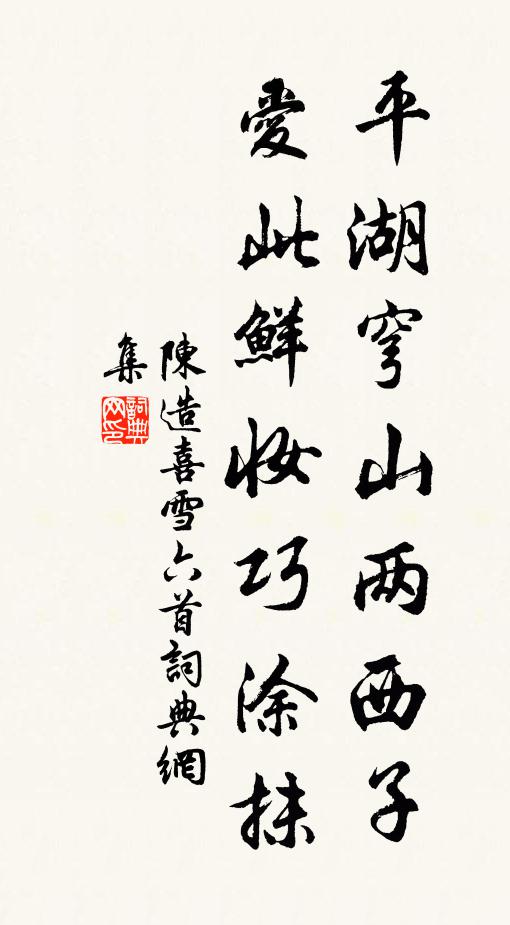 平湖穹山两西子
愛此鮮妝巧涂抹
陳造喜雪六首詞典網
集
詞典
网印